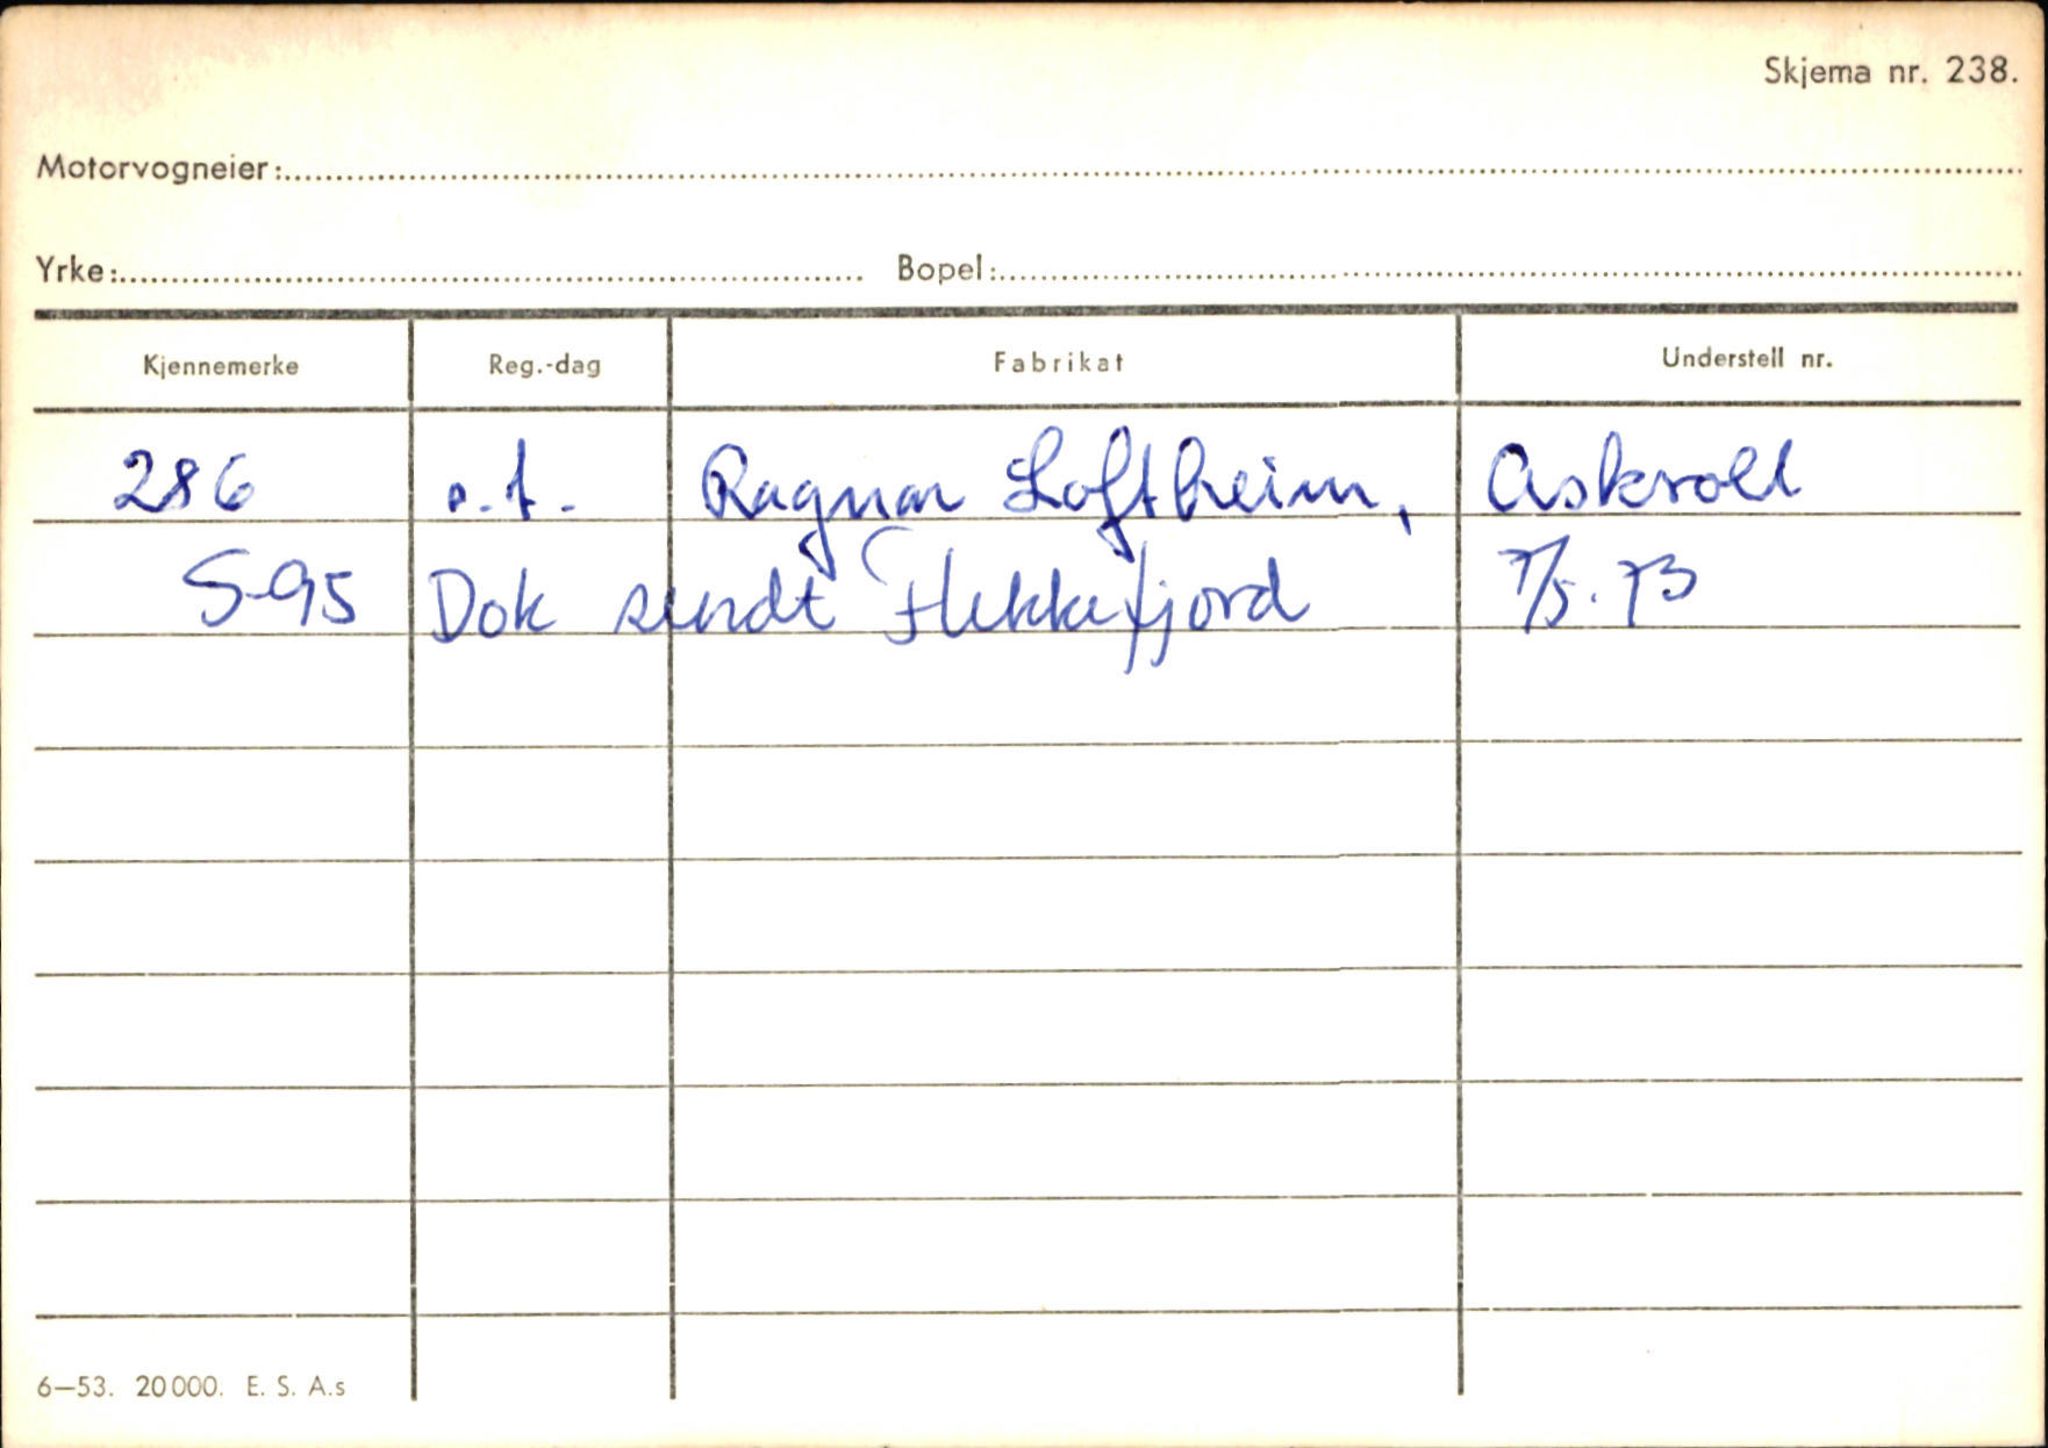 Skjema nr. 238.
Motorvogneier:
Yrke: Bopel:
Kjennemerke Reg.-dag Fabrikat Understell nr.
286 e.t. Ragnar Loftheim, Askvoll
S-95 Dok sendt Flekkefjord 7/5.73
6—53. 20000. E. S. A.s